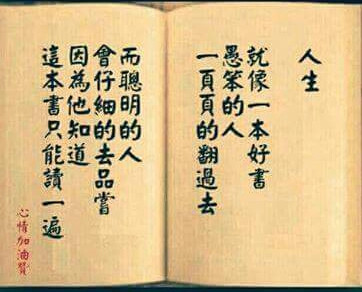 人生
就像一本好書
愚笨的人
一頁頁的翻過去
而聰明的人
會仔細的去品嘗
因為他知道
這本書只能讀一遍
心情加油贊